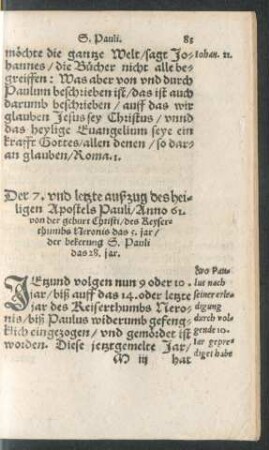 S. Pauli. 83
möchte die gantze Welt/sagt Jo-
hannes/die Bücher nicht alle be-
greiffen: Was aber von vnd durch
Paulum beschrieben ist/das ist auch
darumb beschrieben/auff das wir
glauben Jesus sey Christus/vnnd
das heylige Euangelium seye ein
krafft Gottes/allen denen/so dar-
an glauben/Roma.1.
Iohan. 21.
Der 7. vnd letzte außzug des hei-
ligen Apostels Pauli/Anno 61.
von der geburt Christi/des Keyser-
thumbs Neronis das 5. jar/
der bekerung S. Pauli
das 28. jar.
JEtzund volgen nun 9 oder 10.
jar/biß auff das 14. oder letzte
jar des Keiserthumbs Nero-
nis/biß Paulus widerumb gefeng-
klich eingezogen/vnd gemördet ist
worden. Diese jetztgemelte Jar/
Wo Pau-
lus nach
seiner erle-
digung
durch vol-
gende 10.
iar gepre-
diget habe
M iij hat